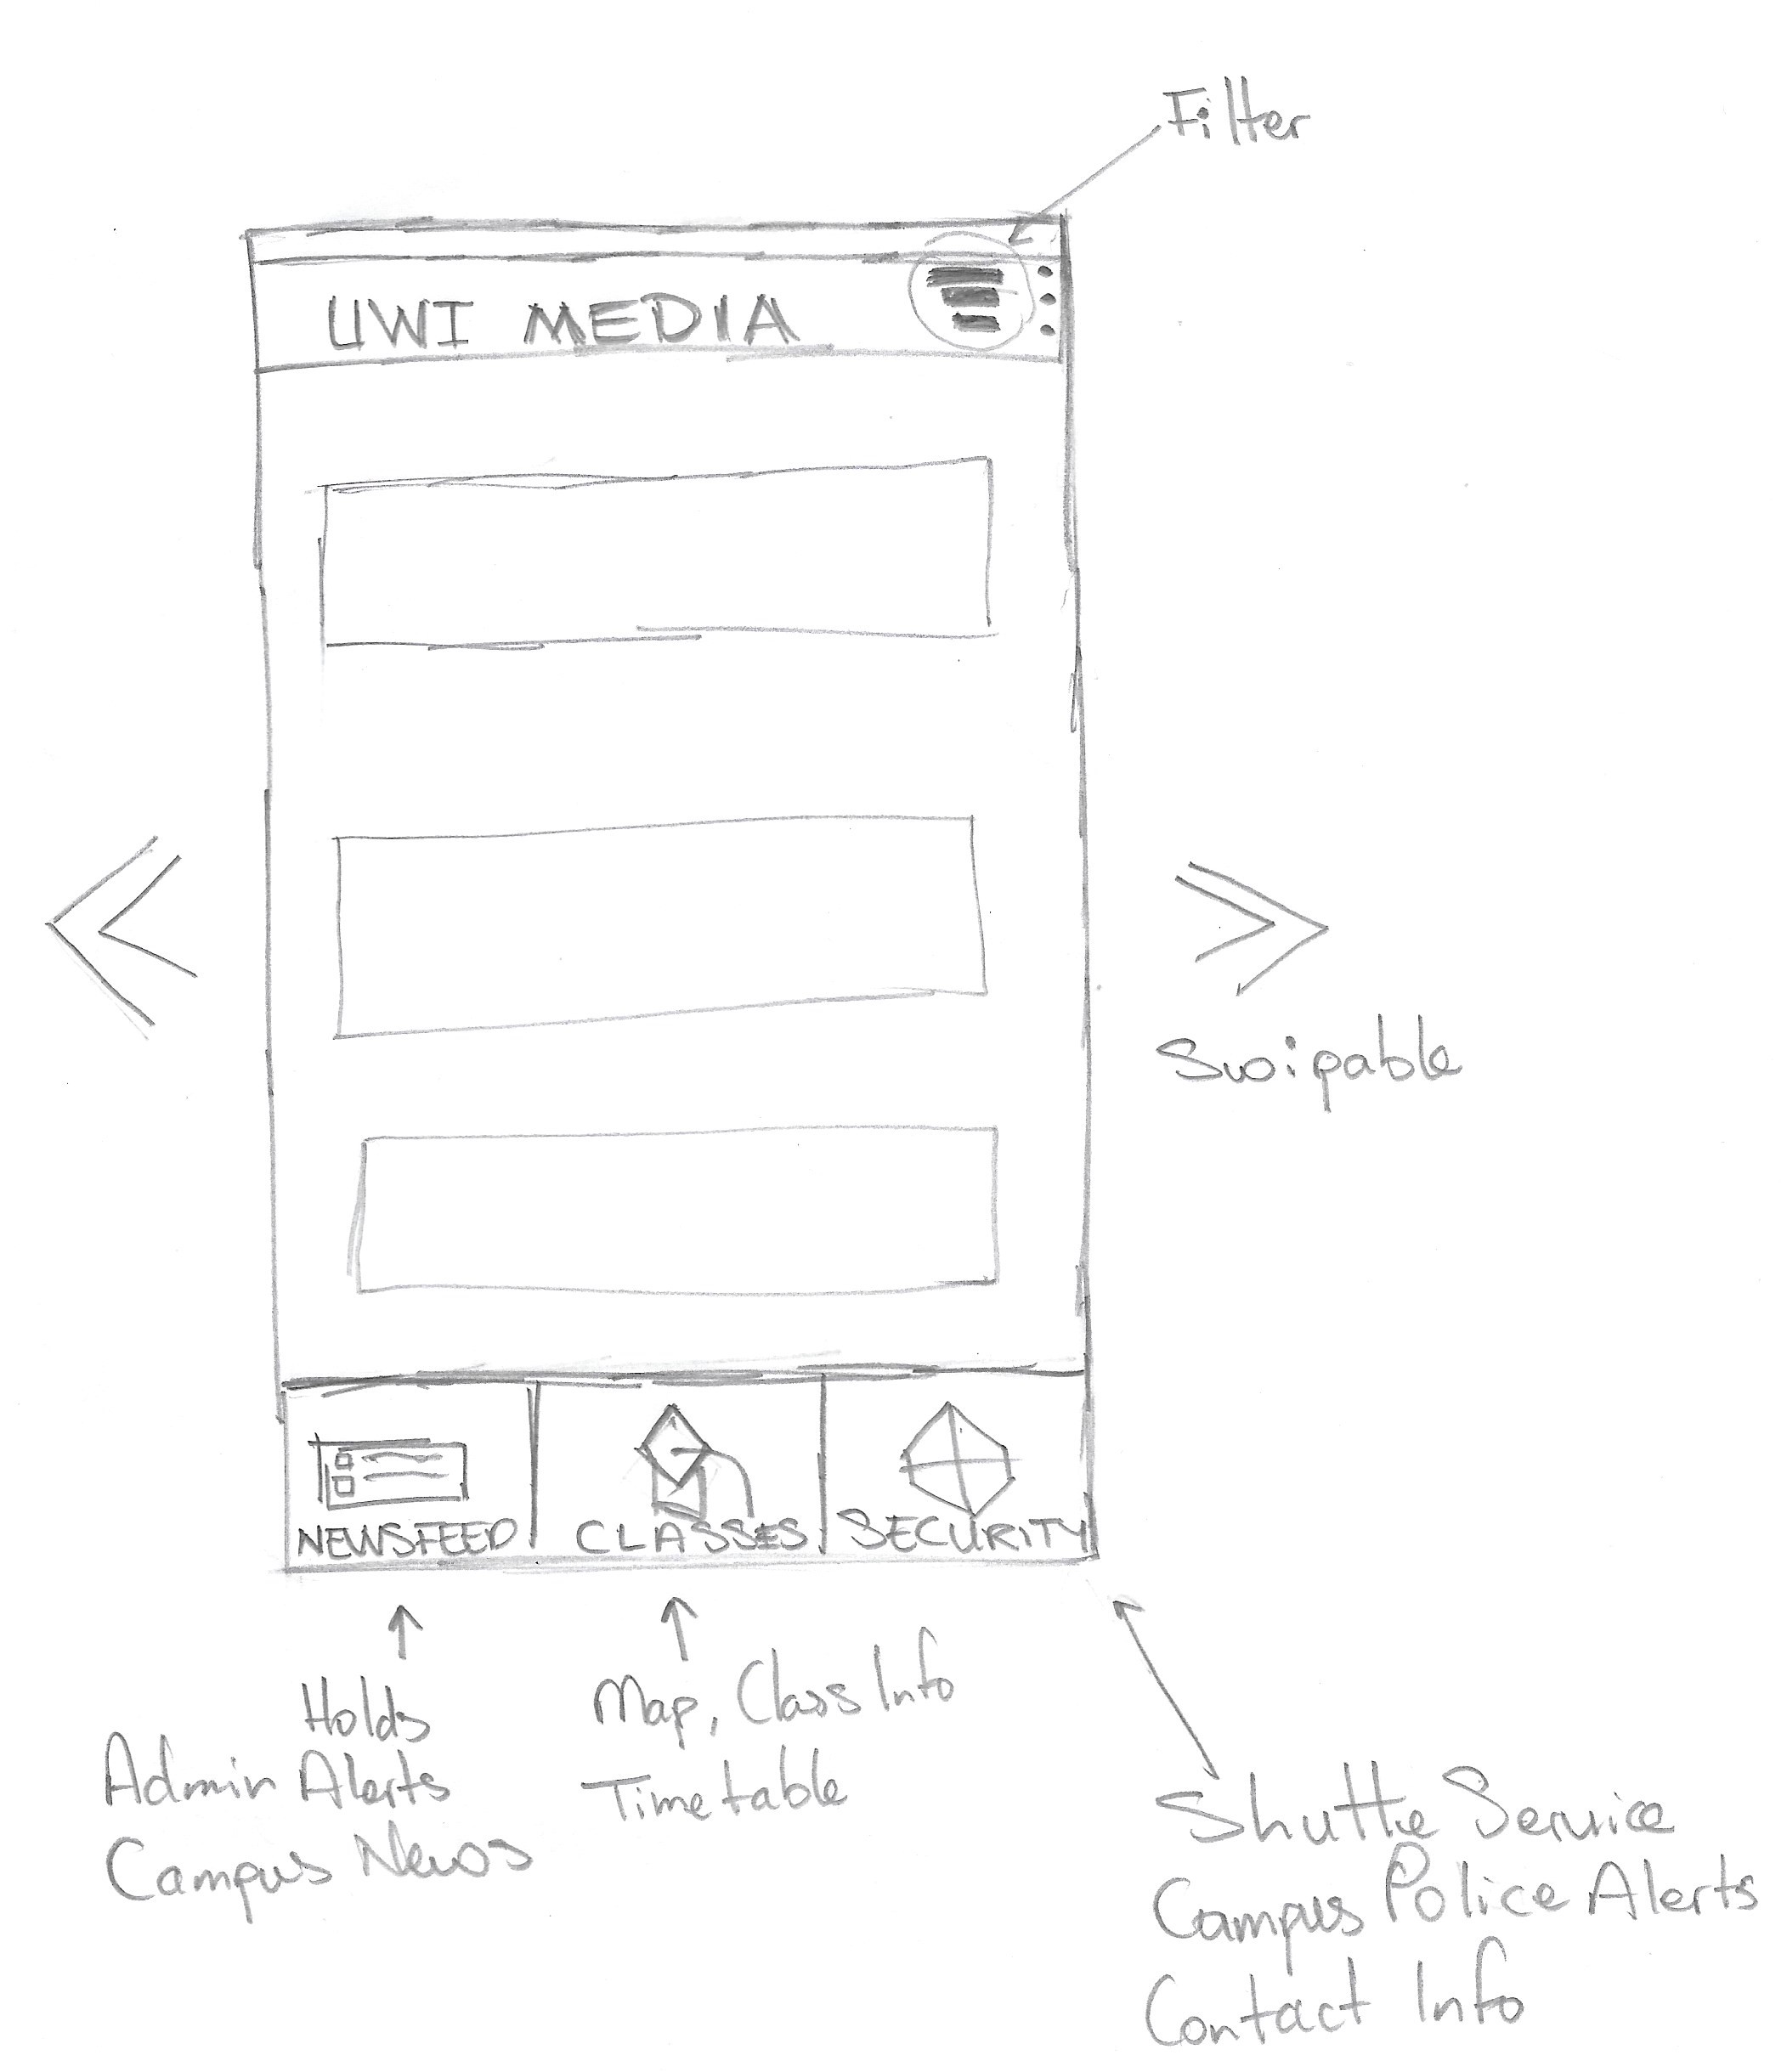 Filter
UWI MEDIA
Swipable
NEWSFEED
CLASSES
SECURITY
Holds
Admin Alerts
Campus News
Map, Class Info
Timetable
Shuttle Service
Campus Police Alerts
Contact Info